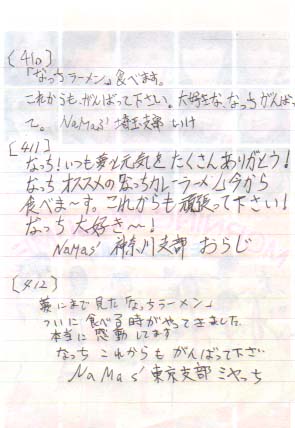 [410]
「なっちラーメン」食べます。
これからも、がんばって下さい。大好きな、なっちがんばっ
て。 NaMas' 埼玉支部 いけ
[411]
なっち!いつも夢と元気をたくさんありがとう!
なっちオススメの「なっちカレーラーメン」今から
食べま〜す。これからも頑張って下さい!
なっち大好き〜!
NaMas' 神奈川支部 おらじ
[412]
夢にまで見た「なっちラーメン」
ついに食べる時がやってきました
本当に感動してます
なっち これからも がんばって下さい
NaMas' 東京支部 ミヤっち